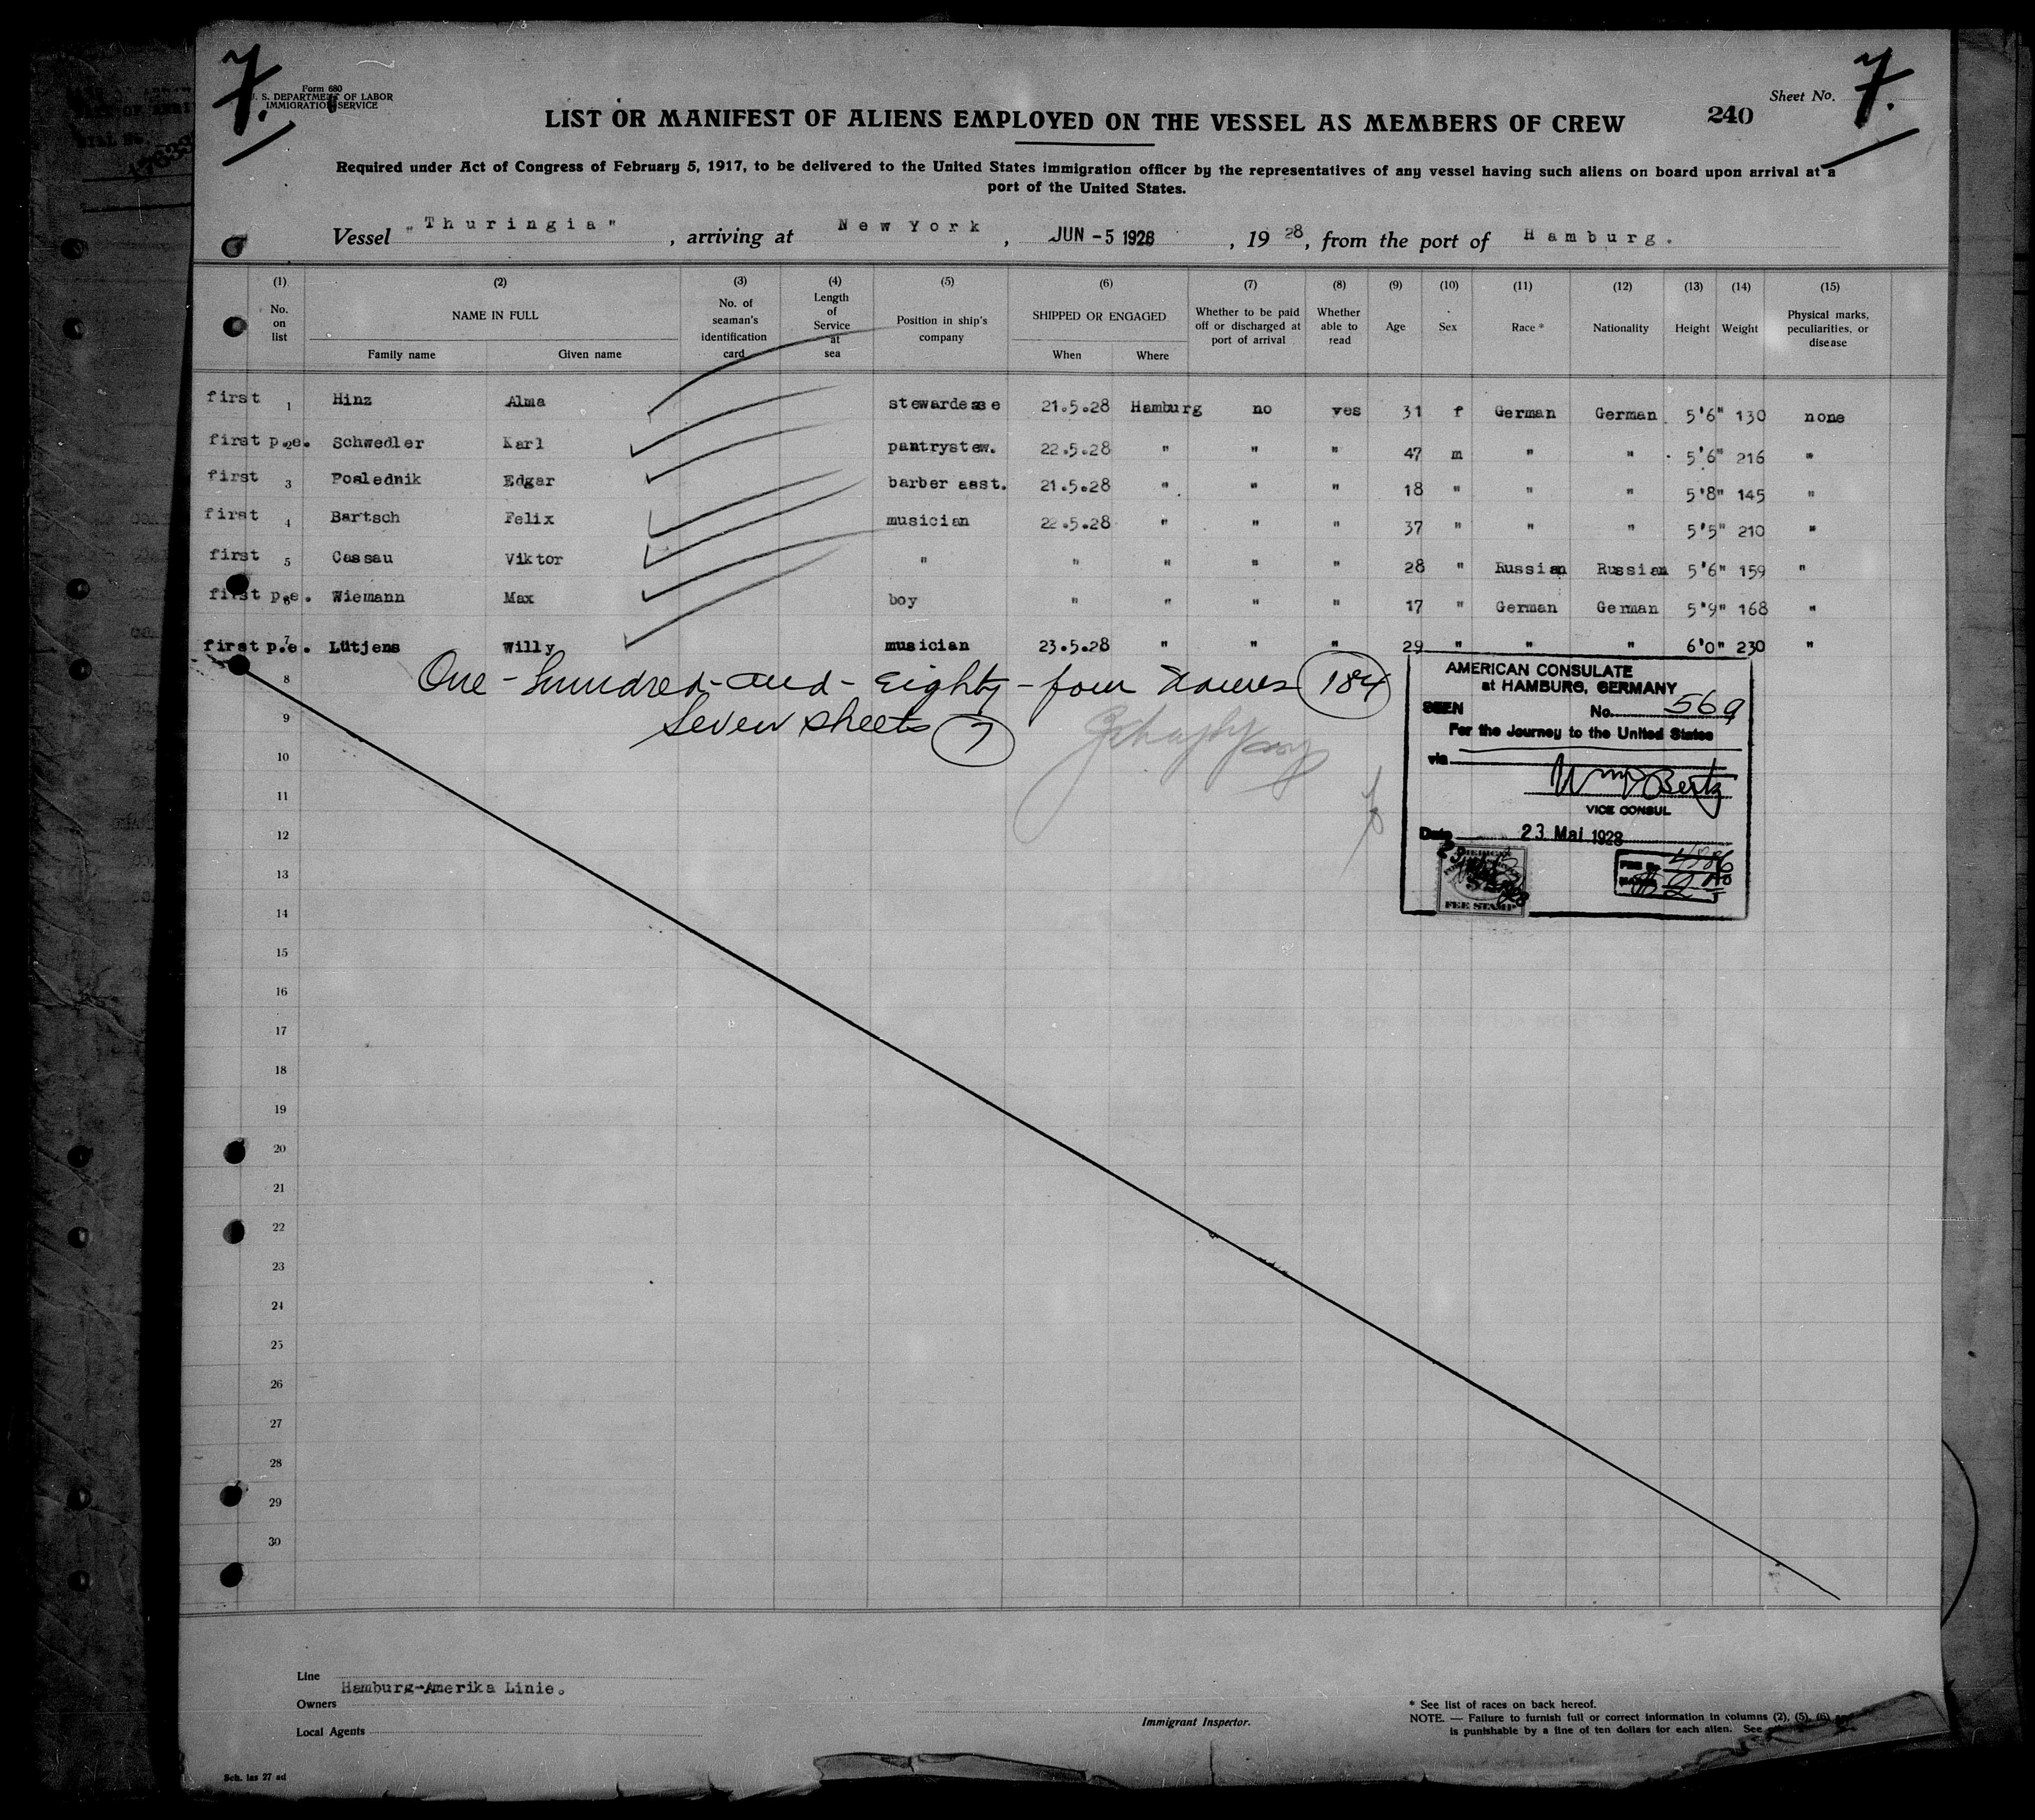 7.
Form 680
U. S. DEPARTMENT OF LABOR
IMMIGRATION SERVICE
Sheet No. 7.
240
LIST OR MANIFEST OF ALIENS EMPLOYED ON THE VESSEL AS MEMBERS OF CREW
Required under Act of Congress of February 5, 1917, to be delivered to the United States immigration officer by the representatives of any vessel having such aliens on board upon arrival at a
port of the United States.
Vessel „Thuringia", arriving at New York, JUN -5 1928, 19 28, from the port of Hamburg.
(1) (2) (3) (4) (5) (6) (7) (8) (9) (10) (11) (12) (13) (14) (15)
No. on list NAME IN FULL No. of seaman's identification card Length of Service at sea Position in ship's company SHIPPED OR ENGAGED Whether to be paid off or discharged at port of arrival Whether able to read Age Sex Race * Nationality Height Weight Physical marks, peculiarities, or disease
Family name Given name When Where
first 1 Hinz Alma stewardesse 21.5.28 Hamburg no yes 31 f German German 5'6" 130 none
first p.e. 2 Schwedler Karl pantrystew. 22.5.28 " " " 47 m " " 5'6" 216 "
first 3 Poslednik Edgar barber asst. 21.5.28 " " " 18 " " " 5'8" 145 "
first 4 Bartsch Felix musician 22.5.28 " " " 37 " " " 5'5" 210 "
first 5 Cassau Viktor " " " " " 28 " Russian Russian 5'6" 159 "
first p.e. 6 Wiemann Max boy " " " " 17 " German German 5'9" 168 "
first p.e. 7 Lütjens Willy musician 23.5.28 " " " 29 " " " 6'0" 230 "
One-hundred-and-Eighty-four names 184
Seven sheets 7
AMERICAN CONSULATE
at HAMBURG, GERMANY
SEEN No. 569
For the Journey to the United States
via
Wm Bertz
VICE CONSUL
Date 23 Mai 1928
FEE STAMP
8
9
10
11
12
13
14
15
16
17
18
19
20
21
22
23
24
25
26
27
28
29
30
Line
Hamburg-Amerika Linie.
Owners
Local Agents
Immigrant Inspector.
* See list of races on back hereof.
NOTE. — Failure to furnish full or correct information in columns (2), (5), (6)
is punishable by a fine of ten dollars for each alien. See
Sch. las 27 ad